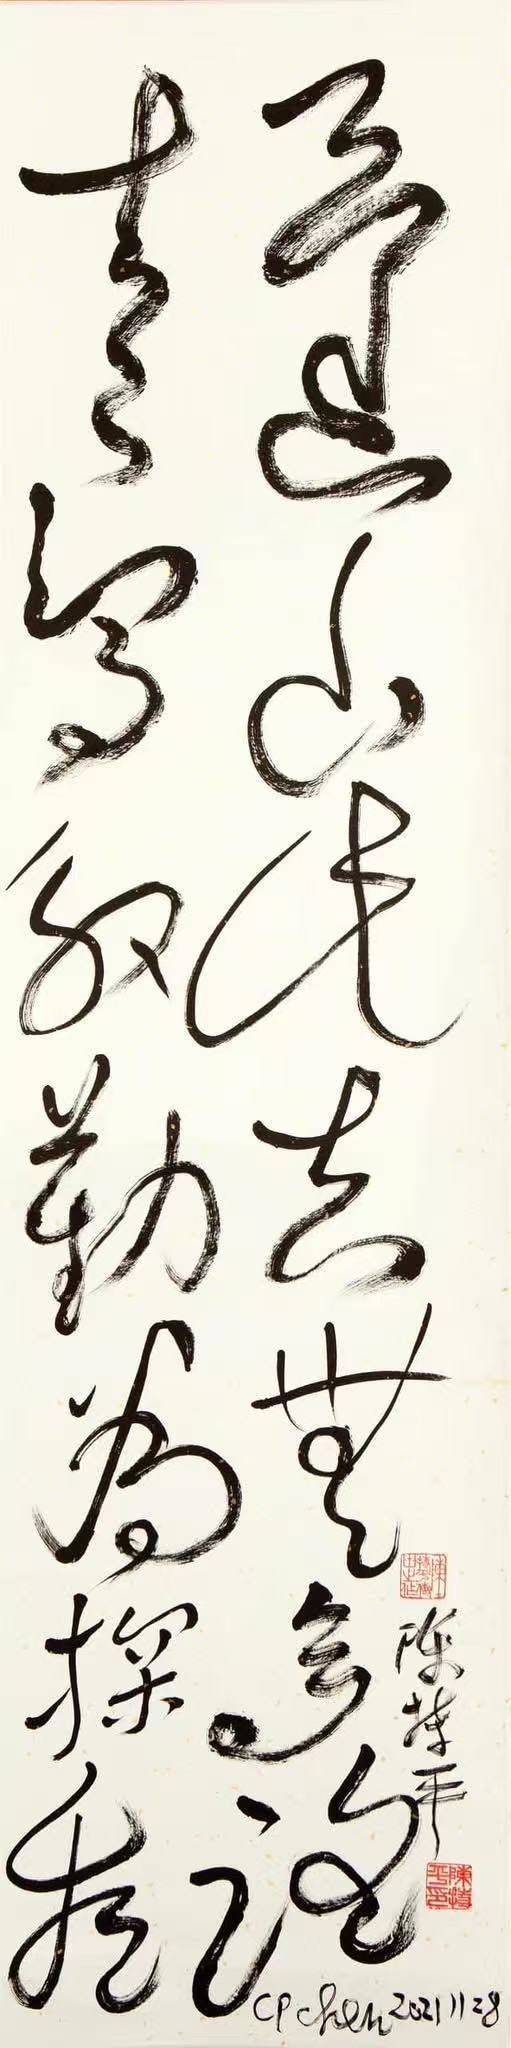 蓬山此去無多路
青鳥殷勤為探看
陳 平
CP chen 2021 11 28